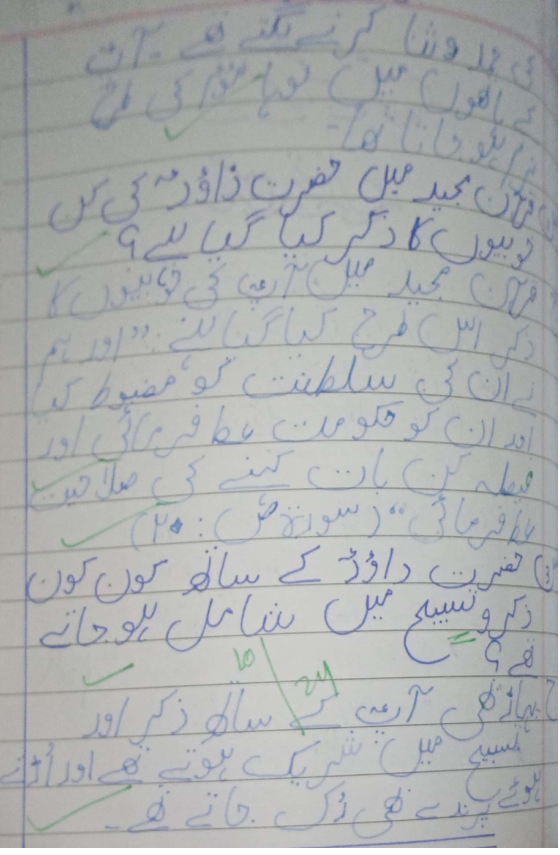 کی حمد و ثنا کرنے لگتے تھے۔ آپؑ
کے ہاتھوں میں لوہا موم کی طرح
نرم ہو جاتا تھا۔
قرآن مجید میں حضرت داؤدؑ کی کن
خوبیوں کا ذکر کیا گیا ہے؟
قرآن مجید میں آپؑ کی خوبیوں کا
ذکر اس طرح کیا گیا ہے: "اور ہم
نے ان کی سلطنت کو مضبوط کیا
اور ان کو حکومت عطا فرمائی اور
فیصلہ کن بات کہنے کی صلاحیت
عطا فرمائی" (سورۃ ص: ۲۰)
حضرت داؤدؑ کے ساتھ کون کون
ذکر و تسبیح میں شامل ہو جاتے
تھے؟
پہاڑ بھی آپؑ کے ساتھ ذکر اور
تسبیح میں شریک ہوتے تھے اور اُڑتے
ہوئے پرندے بھی رُک جاتے تھے۔